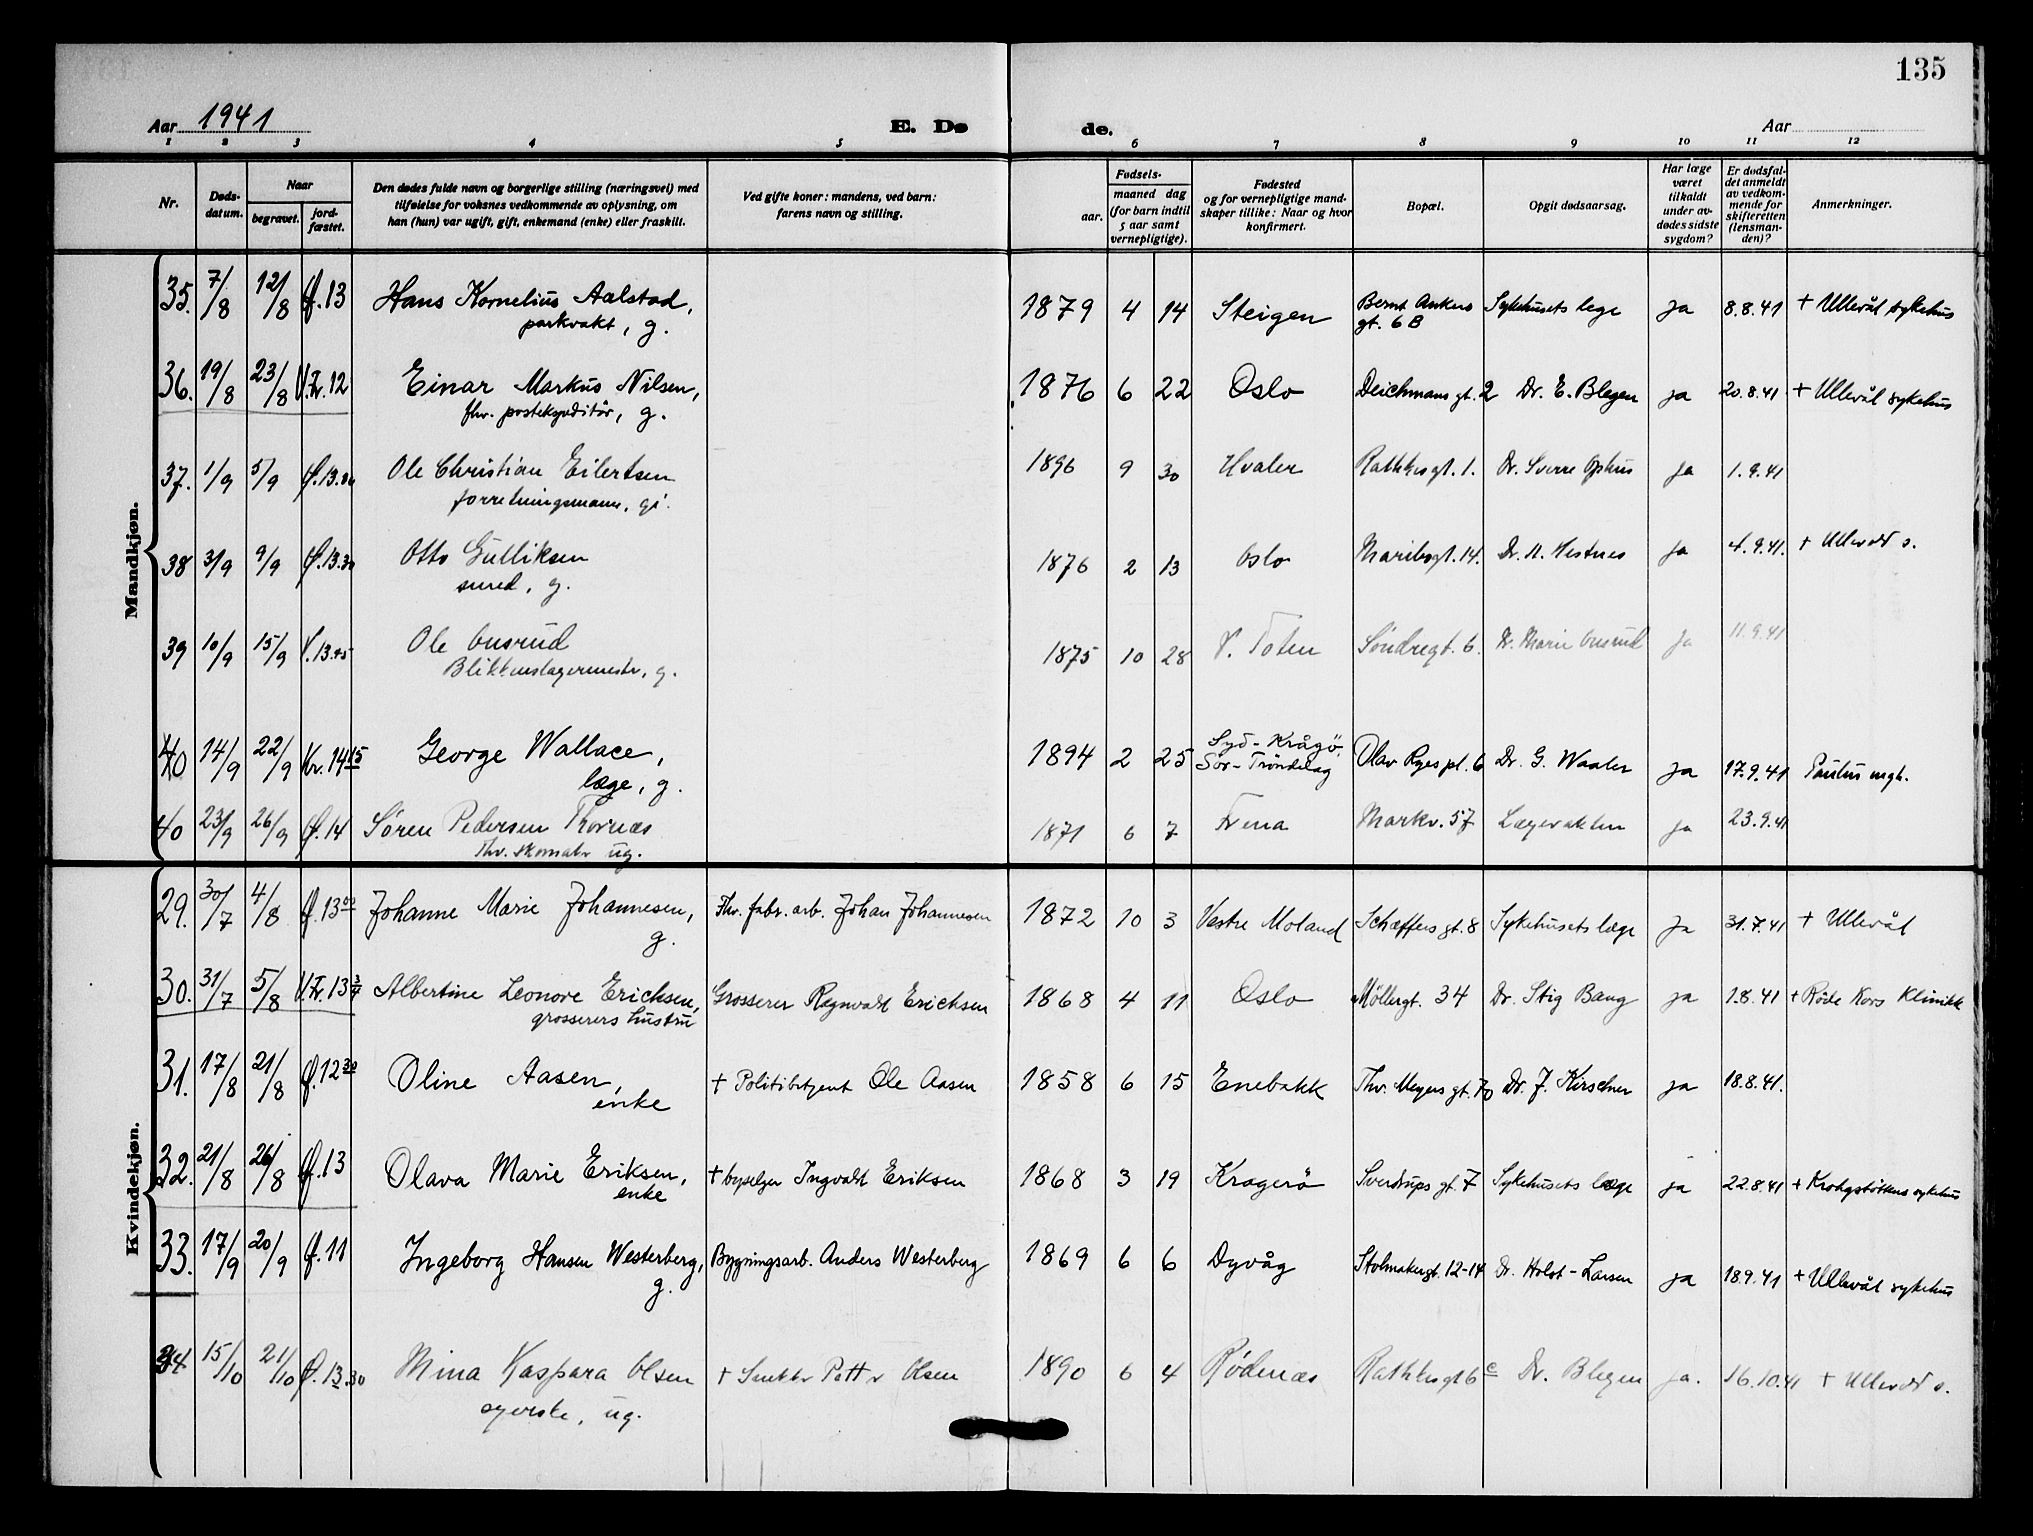 135
Aar 1941
E. Dø
de.
Aar
1 2 3 4 5 6 7 8 9 10 11 12
Nr.
Døds-
datum.
Naar
begravet.
jord-
fæstet.
Den dødes fulde navn og borgerlige stilling (næringsvei) med
tilføielse for voksnes vedkommende av oplysning, om
han (hun) var ugift, gift, enkemand (enke) eller fraskilt.
Ved gifte koner: mandens, ved barn:
farens navn og stilling.
Fødsels-
aar.
maaned dag
(for barn indtil
5 aar samt
vernepligtige).
Fødested
og for vernepligtige mand-
skaper tillike: Naar og hvor
konfirmert.
Bopæl.
Opgit dødsaarsag.
Har læge
været
tilkaldt
under av-
dødes sidste
sygdom?
Er dødsfal-
det anmeldt
av vedkom-
mende for
skifteretten
(lensman-
den)?
Anmerkninger.
Mandkjøn.
35. 7/8 12/8 Ø.13 Hans Kornelius Aalstad, 1879 4 14 Steigen Bernt Ankers Sykehusets lege ja 8.8.41 + Ullevål sykehus
parkvakt, g. gt. 6B
36. 19/8 23/8 V.Kr.12 Einar Markus Nilsen, 1876 6 22 Oslo Deichmans gt. 2 Dr. E. Blegen ja 20.8.41 + Ullevål sykehus
fhv. postekspeditør, g.
37. 1/9 5/9 Ø.13.30 Ole Christian Eilertsen 1896 9 30 Hvaler Rathkes gt. 1. Dr. Sverre Ophus ja 1.9.41
forretningsmann, gi.
38 3/9 9/9 Ø.13.30 Otto Gulliksen 1876 2 13 Oslo Maribogt. 14. Dr. N. Hestnes ja 4.9.41. + Ullevål s.
smed, g.
39 10/9 15/9 V.13.45 Ole Busrud 1875 10 28 V. Toten Søndregt. 6. Dr. Marie Busrud Ja 11.9.41
Blikkenslagermester, g.
40 14/9 22/9 Kr.14 15 George Wallace, 1894 2 25 Syd-Krågø, Olav Ryes pl. 6 Dr. G. Waaler ja 17.9.41 Paulus mgh.
læge, g. Sør-Trøndelag
40 23/9 26/9 Ø.14 Søren Pedersen Thornæs 1871 6 7 Frena Markv. 57 Lægevakten ja 23.9.41
Fhv. skomaker ug.
Kvindekjøn.
29. 30/7 4/8 Ø.13 00 Johanne Marie Johannesen, Fhv. fabr. arb. Johan Johannesen 1872 10 3 Vestre Moland Schæffers gt. 8 Sykehusets læge Ja 31.7.41 + Ullevål
g.
30. 31/7 5/8 V.Kr.13 3/4 Albertine Leonore Erichsen, Grosserer Ragnvald Erichsen 1868 4 11 Oslo Møllergt. 34 Dr. Stig Bang ja 1.8.41 + Røde Kors Klinikk
grosserers hustru
31. 17/8 21/8 Ø.12 30 Oline Aasen, + Politibetjent Ole Aasen 1858 6 15 Enebakk Thv. Meyers gt. 70 Dr. J. Kirschner ja 18.8.41.
enke
32. 21/8 26/8 Ø.13 Olava Marie Eriksen, + byselger Ingvald Eriksen 1868 3 19 Kragerø Sverdrups gt. 7 Sykehusets læge ja 22.8.41 + Krohgstøttens sykehus
enke
33. 17/9 20/9 Ø.11 Ingeborg Hansen Westerberg, Bygningsarb. Anders Westerberg 1869 6 6 Dyvåg Stolmakergt. 12-14 Dr. Holst-Larsen ja 18.9.41 + Ullevål sykehus
g.
34 15/10 21/10 Ø.13.30 Mina Kaspara Olsen + Snekker Petter Olsen 1890 6 4 Rødenæs Rathkesgt 6 c Dr. Blegen ja. 16.10.41 + Ullevål s.
syerske, ug.